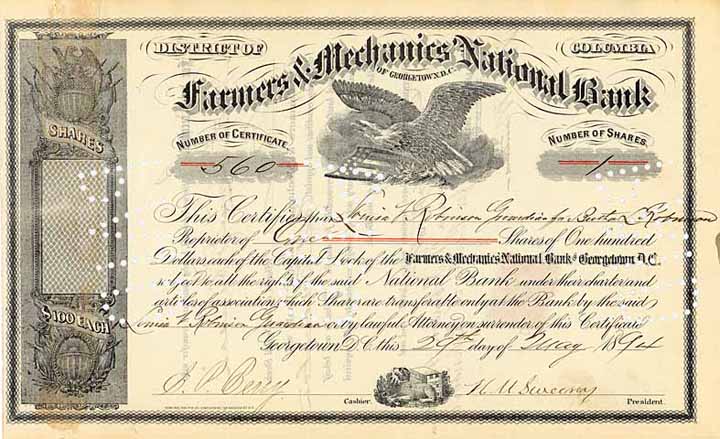 DISTRICT OF COLUMBIA
Farmers & Mechanics National Bank
OF GEORGETOWN, D.C.
SHARES
NUMBER OF CERTIFICATE.
560
NUMBER OF SHARES.
1
This Certifies that Louisa V. Robinson Guardian for L. Robinson
Proprietor of one Shares of One hundred
Dollars each of the Capital Stock of the Farmers & Mechanics National Bank of Georgetown D.C.
subject to all the rights of the said National Bank under their charter and
articles of association, which Shares are transferable only at the Bank by the said
Louisa V. Robinson Guardian or by lawful Attorney on surrender of this Certificate
$100 EACH
Georgetown D.C. this 29th day of May 1894
Cashier.
H. M. Sweeny
President.